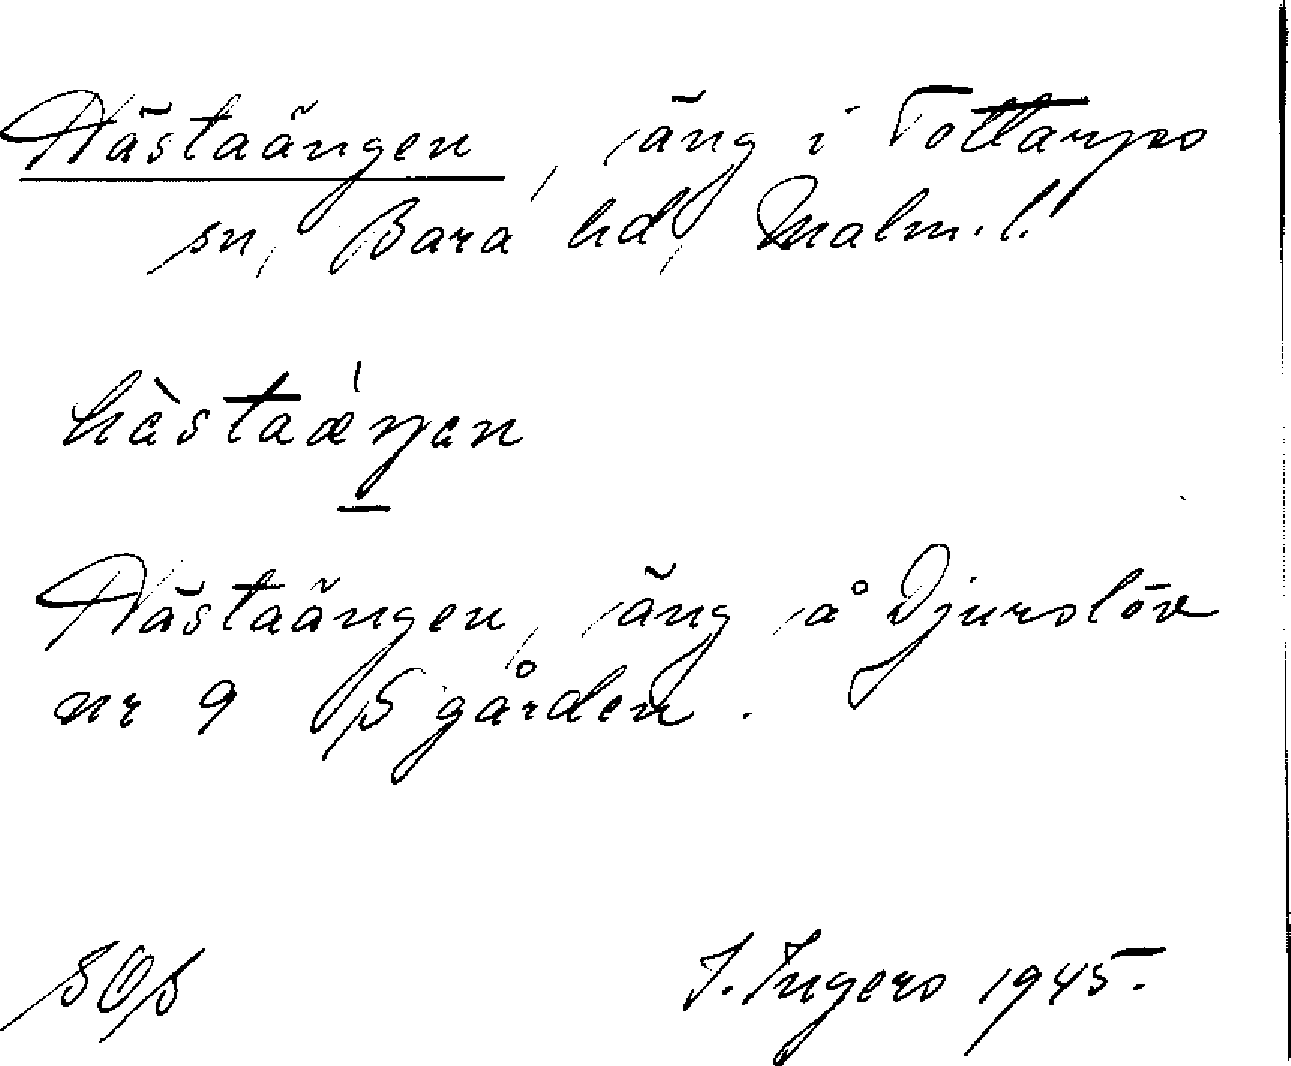 Hästaängen, äng i Tottarps
sn, Bara hd, Malm. l.
hàstaǽŋan
Hästaängen, äng å Djurslöv
nr 9 S gården.
SOS
I. Ingers 1945.